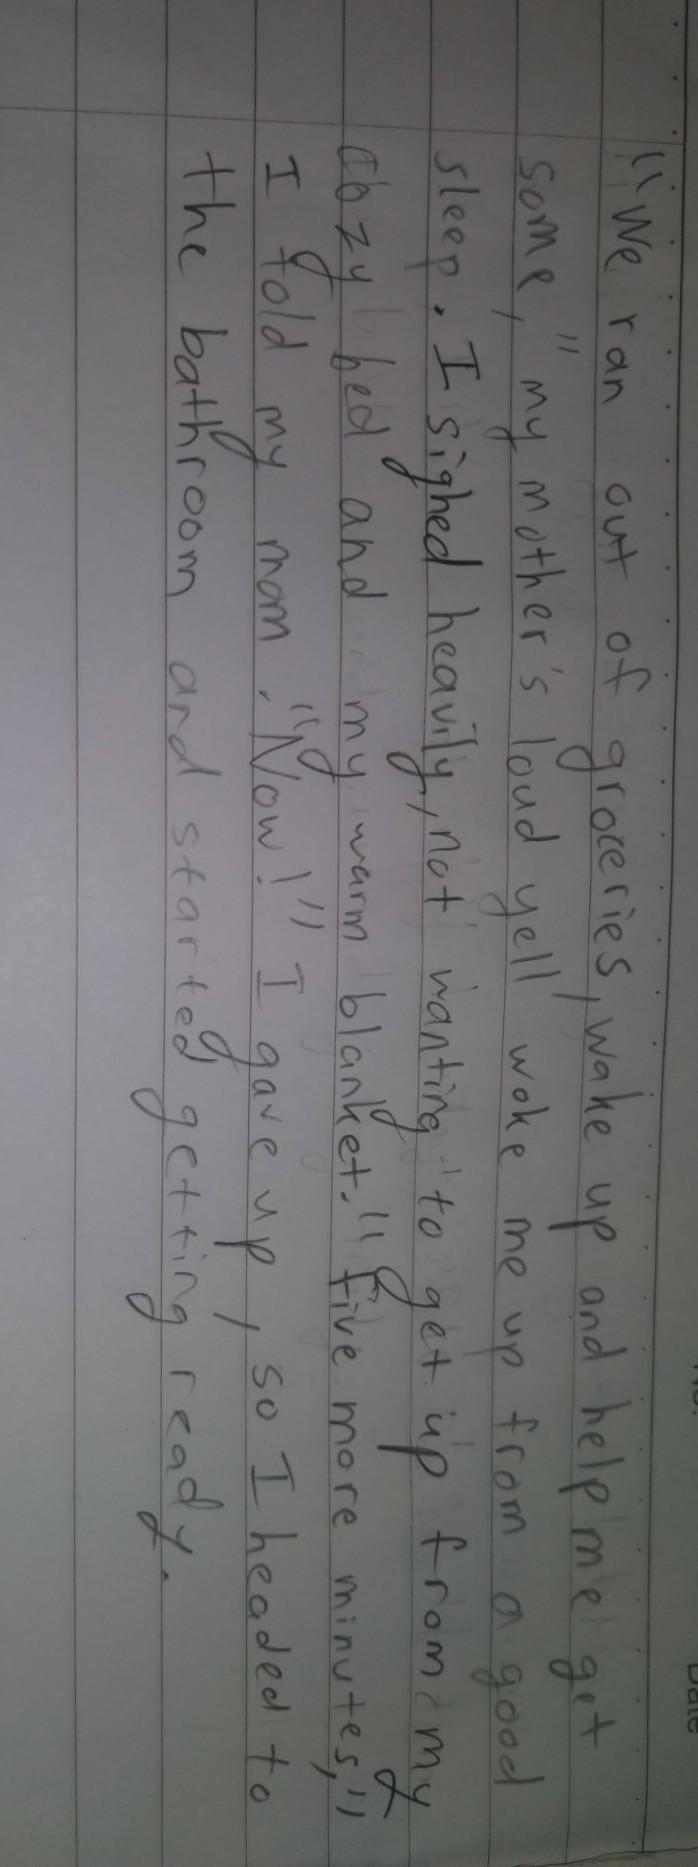 "We ran out of groceries, wake up and help me get
some," my mother's loud yell woke me up from a good
sleep. I sighed heavily, not wanting to get up from my
cozy bed and my warm blanket. "five more minutes,"
I told my mom. "Now!" I gave up, so I headed to
the bathroom and started getting ready.
No.
Date